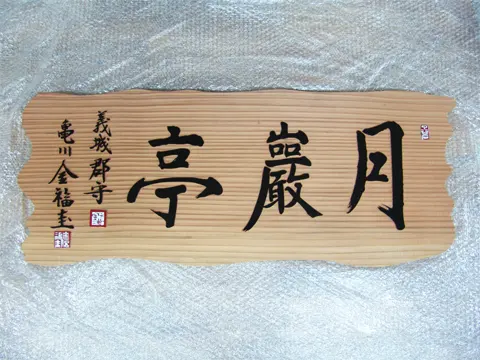 月巖亭
義城郡守
龜川金福圭